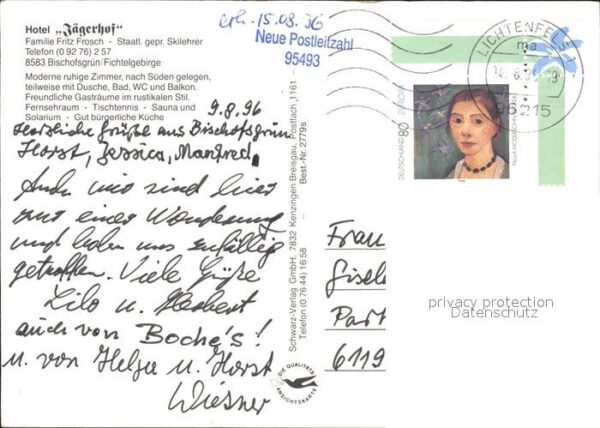 Hotel „Jägerhof"
Familie Fritz Frosch - Staatl. gepr. Skilehrer
Telefon (0 92 76) 2 57
8583 Bischofsgrün/Fichtelgebirge
Moderne ruhige Zimmer, nach Süden gelegen,
teilweise mit Dusche, Bad, WC und Balkon.
Freundliche Gasträume im rustikalen Stil.
Fernsehraum - Tischtennis - Sauna und
Solarium - Gut bürgerliche Küche
erh. 15.08.96
Neue Postleitzahl
95493
9.8.96
Herzliche Grüße aus Bischofsgrün
Horst, Jessica, Manfred.
Auch wir sind hier
mit einer Wanderung
und haben uns zufällig
getroffen. Viele Grüße
Lilo u. Herbert
auch von Boche's!
u. von Helga u. Horst
Wiesner
Schwarz-Verlag GmbH, 7832 Kenzingen Breisgau, Postfach 1161 -
Telefon (0 76 44) 16 58 - Best.-Nr. 2779s
DIE QUALITÄTS
ANSICHTSKARTE
LICHTENFELS 1
ma
96215
DEUTSCHLAND 80 EUROPA
PAULA MODERSOHN
Frau
Gisel
Part
6119
privacy protection
Datenschutz